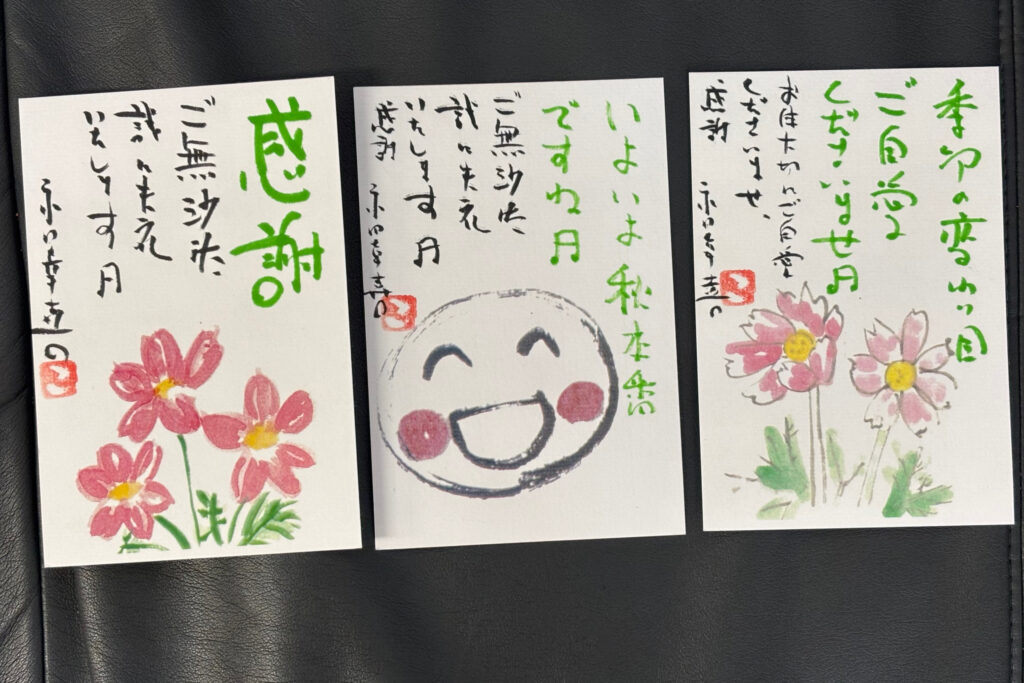 感謝。
ご無沙汰、
誠に失礼
いたします
いよいよ秋本番
ですね
ご無沙汰、
誠に失礼
いたします
感謝
季節の変わり目
ご自愛
くださいませ
お体大切にご自愛
くださいませ、
感謝